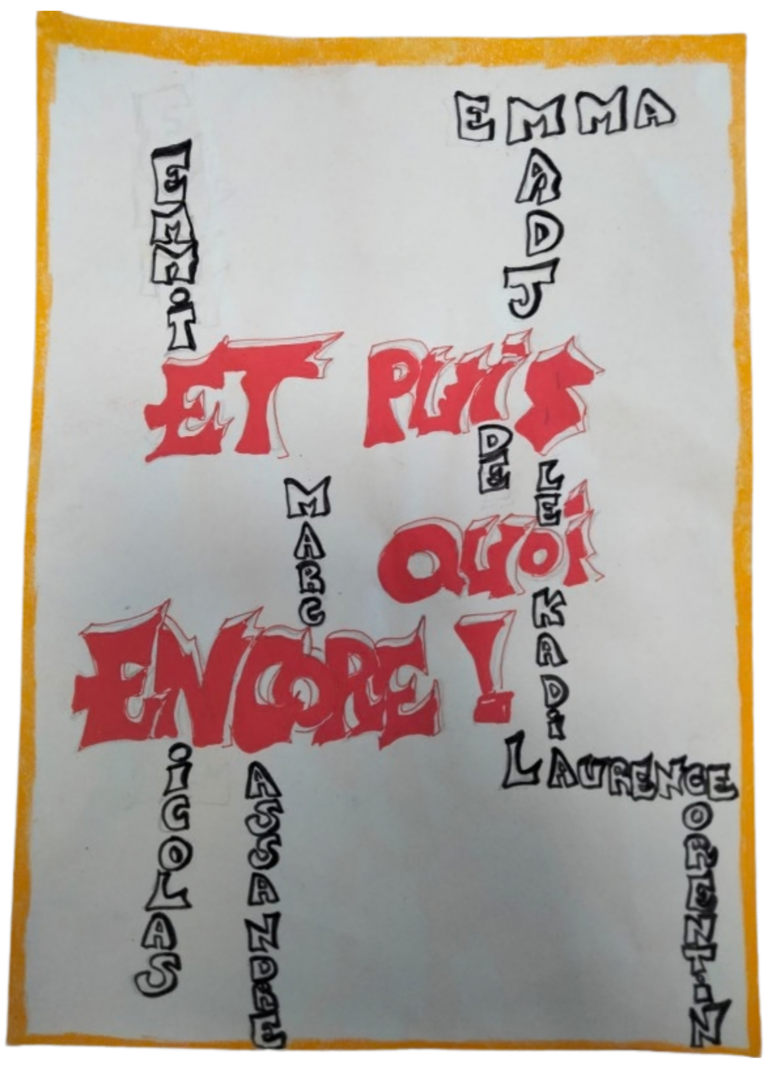 EMMA
EMMiT
ADJ
ET PUiS
DE
LE
MARC
QUOi
ENCORE !
KADi
LAURENCE
iCOLAS
ASSANDRE
ORENTiN